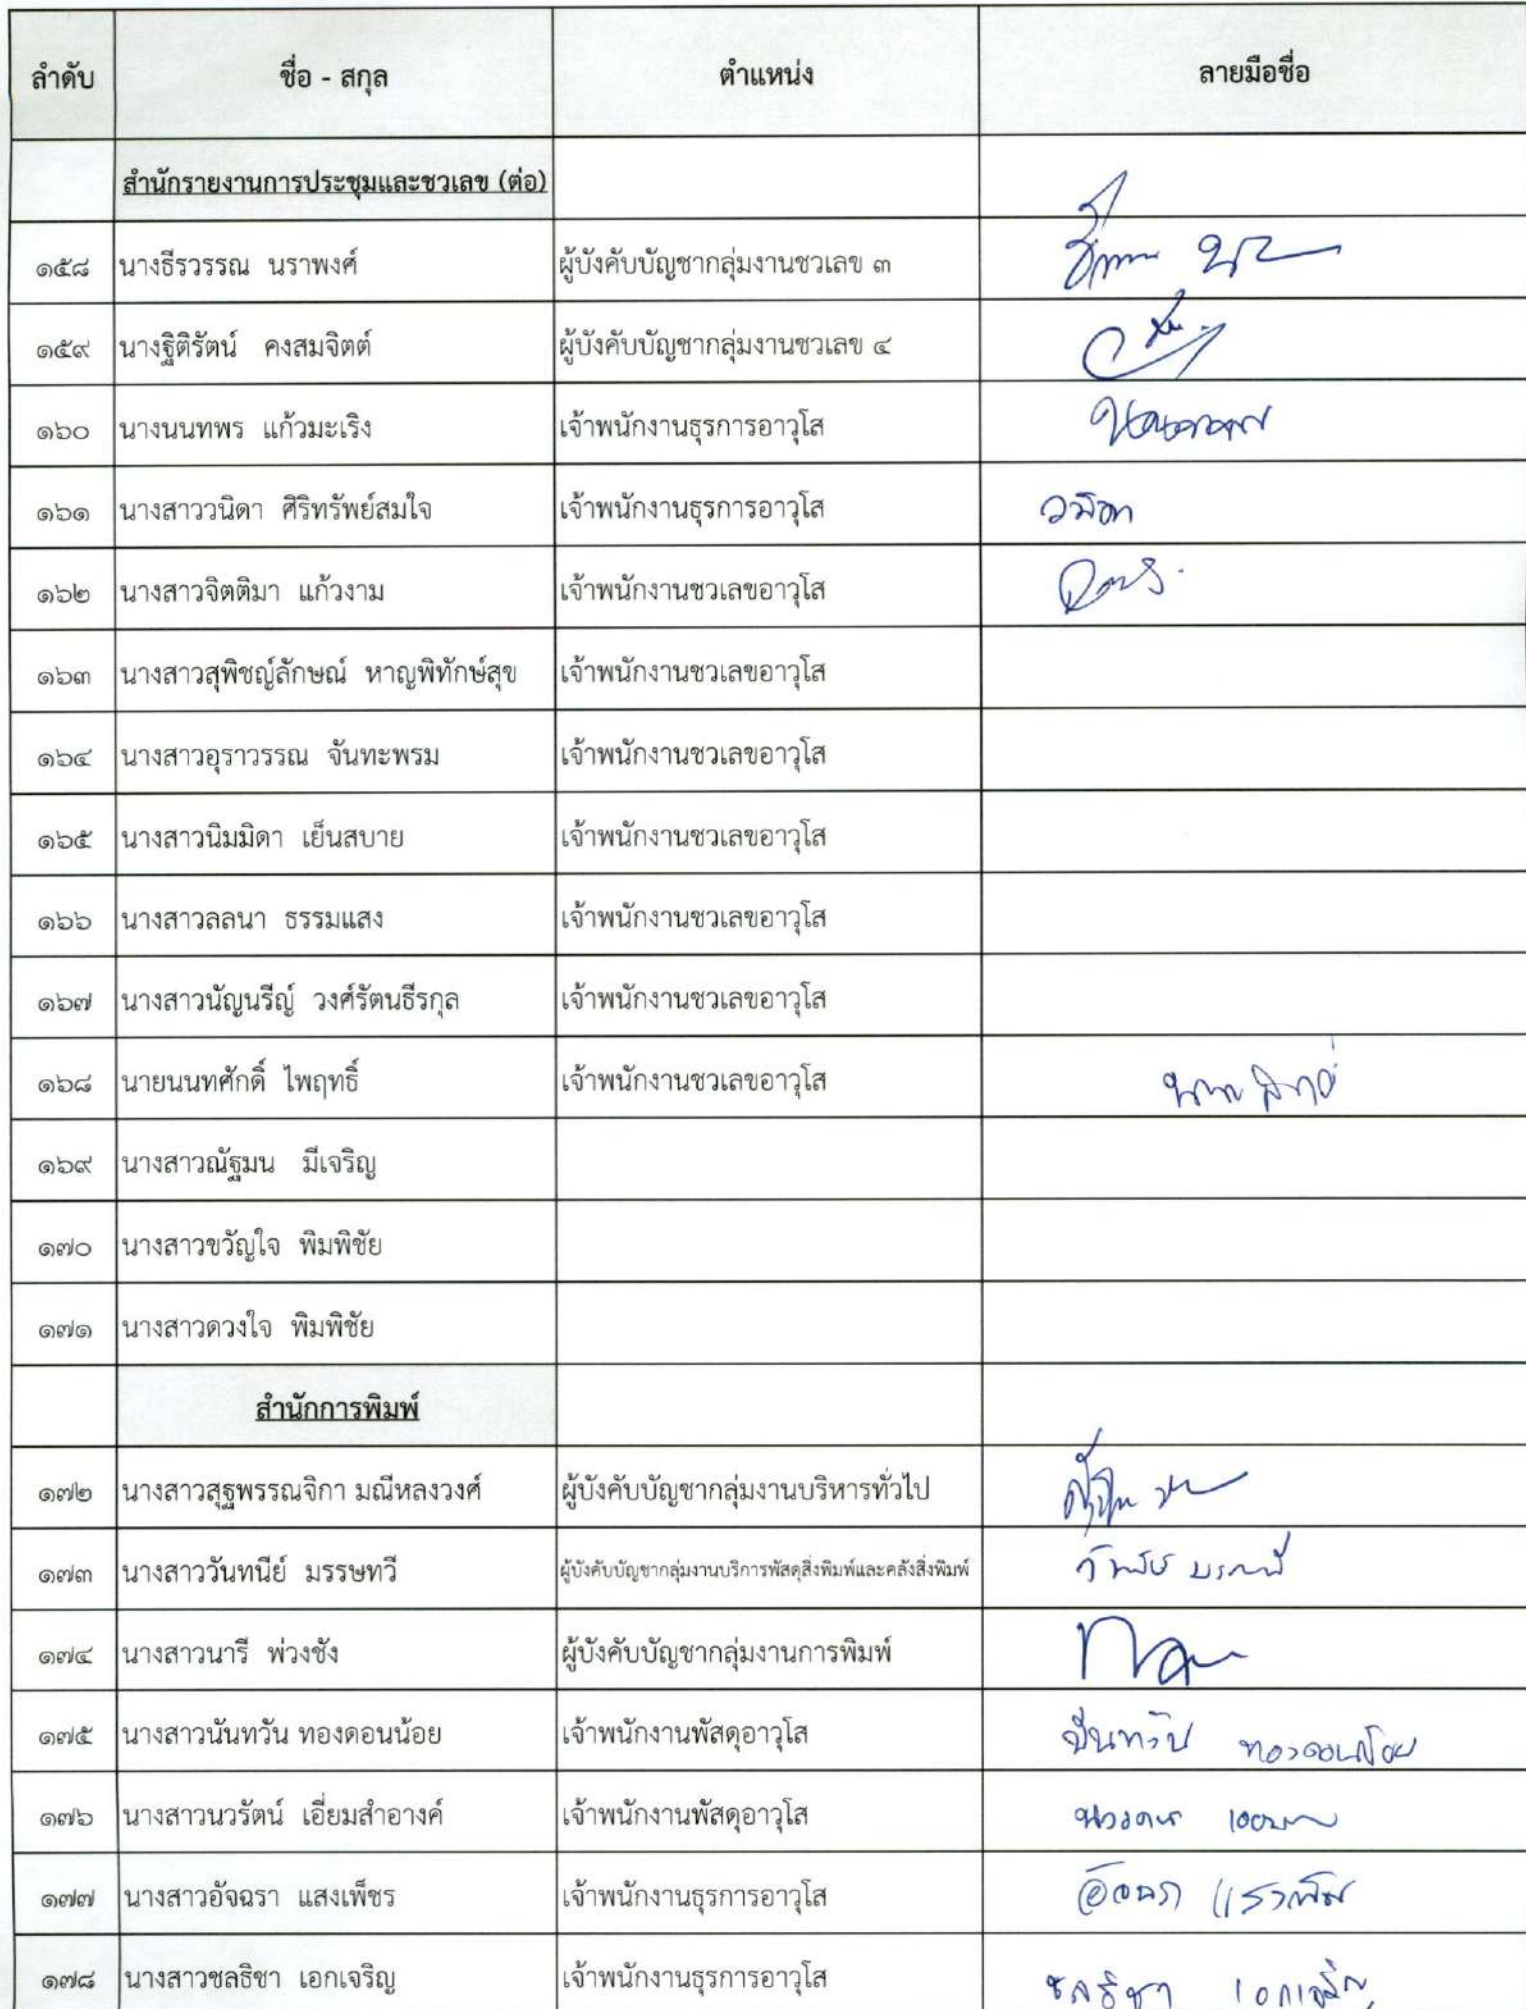 ลำดับ ชื่อ - สกุล ตำแหน่ง ลายมือชื่อ
สำนักรายงานการประชุมและชวเลข (ต่อ)
๑๕๘ นางธีรวรรณ นราพงศ์ ผู้บังคับบัญชากลุ่มงานชวเลข ๓
๑๕๙ นางฐิติรัตน์ คงสมจิตต์ ผู้บังคับบัญชากลุ่มงานชวเลข ๔
๑๖๐ นางนนทพร แก้วมะเริง เจ้าพนักงานธุรการอาวุโส
๑๖๑ นางสาววนิดา ศิริทรัพย์สมใจ เจ้าพนักงานธุรการอาวุโส วนิดา
๑๖๒ นางสาวจิตติมา แก้วงาม เจ้าพนักงานชวเลขอาวุโส
๑๖๓ นางสาวสุพิชญ์ลักษณ์ หาญพิทักษ์สุข เจ้าพนักงานชวเลขอาวุโส
๑๖๔ นางสาวอุราวรรณ จันทะพรม เจ้าพนักงานชวเลขอาวุโส
๑๖๕ นางสาวนิมมิดา เย็นสบาย เจ้าพนักงานชวเลขอาวุโส
๑๖๖ นางสาวลลนา ธรรมแสง เจ้าพนักงานชวเลขอาวุโส
๑๖๗ นางสาวนัญนรีญ์ วงศ์รัตนธีรกุล เจ้าพนักงานชวเลขอาวุโส
๑๖๘ นายนนทศักดิ์ ไพฤทธิ์ เจ้าพนักงานชวเลขอาวุโส
๑๖๙ นางสาวณัฐมน มีเจริญ
๑๗๐ นางสาวขวัญใจ พิมพิชัย
๑๗๑ นางสาวดวงใจ พิมพิชัย
สำนักการพิมพ์
๑๗๒ นางสาวสุฐพรรณจิกา มณีหลงวงศ์ ผู้บังคับบัญชากลุ่มงานบริหารทั่วไป
๑๗๓ นางสาววันทนีย์ มรรษทวี ผู้บังคับบัญชากลุ่มงานบริการพัสดุสิ่งพิมพ์และคลังสิ่งพิมพ์
๑๗๔ นางสาวนารี พ่วงชัง ผู้บังคับบัญชากลุ่มงานการพิมพ์
๑๗๕ นางสาวนันทวัน ทองดอนน้อย เจ้าพนักงานพัสดุอาวุโส นันทวัน ทองดอนน้อย
๑๗๖ นางสาวนวรัตน์ เอี่ยมสำอางค์ เจ้าพนักงานพัสดุอาวุโส
๑๗๗ นางสาวอัจฉรา แสงเพ็ชร เจ้าพนักงานธุรการอาวุโส อัจฉรา แสงเพ็ชร
๑๗๘ นางสาวชลธิชา เอกเจริญ เจ้าพนักงานธุรการอาวุโส ชลธิชา เอกเจริญ